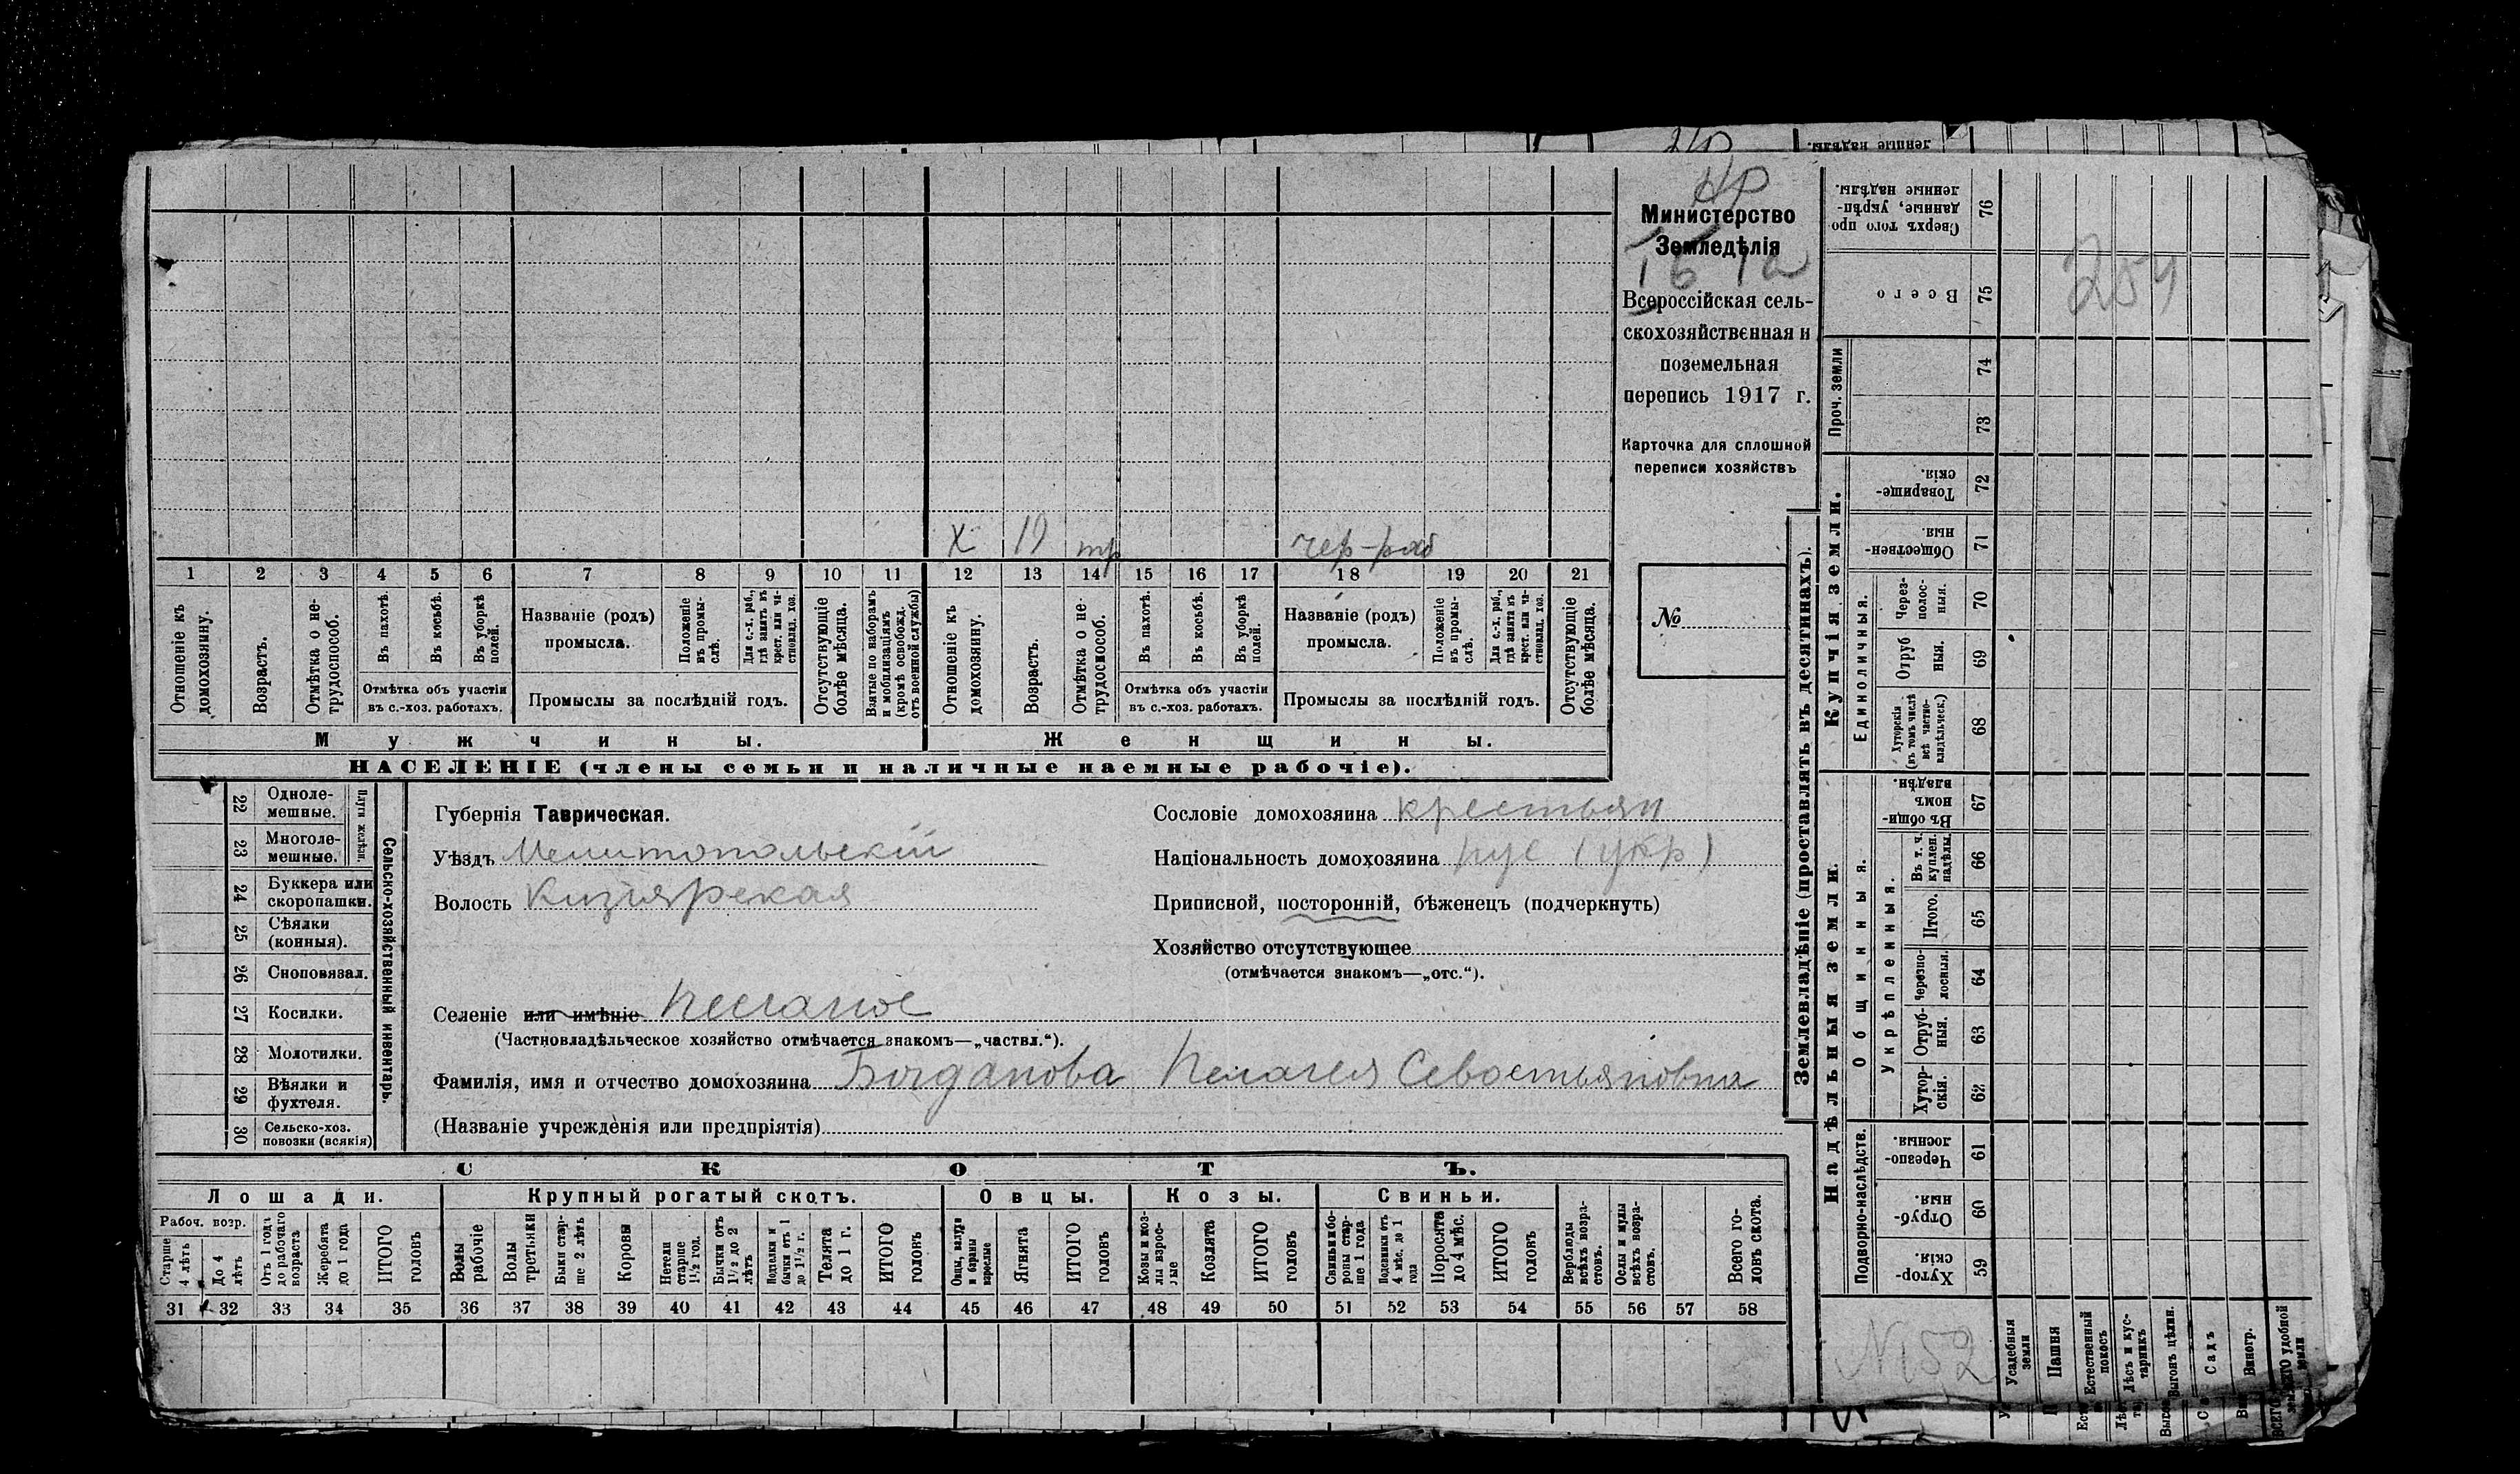 НР
Министерство
Земледѣлія
Всероссійская сель-
скохозяйственная и
поземельная
перепись 1917 г.
Карточка для сплошной
переписи хозяйствъ
№
X 19 тр чер-раб
1 2 3 4 5 6 7 8 9 10 11 12 13 14 15 16 17 18 19 20 21
Отношеніе къ домохозяину.
Возрастъ.
Отмѣтка о не-трудоспособ.
Въ пахотѣ.
Въ косьбѣ.
Въ уборкѣ полей.
Отмѣтка объ участіи
въ с.-хоз. работахъ.
Названіе (родъ)
промысла.
Положеніе въ промы-слѣ.
Для с.-х. раб., гдѣ занятъ въ крест. или ча-стновлад. хоз.
Промыслы за послѣдній годъ.
Отсутствующіе болѣе мѣсяца.
Взятые по наборамъ и мобилизаціямъ (кромѣ освобожд. отъ военной службы)
Отношеніе къ домохозяину.
Возрастъ.
Отмѣтка о не-трудоспособ.
Въ пахотѣ.
Въ косьбѣ.
Въ уборкѣ полей.
Отмѣтка объ участіи
въ с.-хоз. работахъ.
Названіе (родъ)
промысла.
Положеніе въ промы-слѣ.
Для с.-х. раб., гдѣ занята въ крест. или ча-стновлад. хоз.
Промыслы за послѣдній годъ.
Отсутствующіе болѣе мѣсяца.
Мужчины.
Женщины.
НАСЕЛЕНІЕ (члены семьи и наличные наемные рабочіе).
22 Одноле-
мешные.
23 Многоле-
мешные.
Плуги желѣзн.
24 Буккера или
скоропашки.
25 Сѣялки
(конныя).
26 Сноповязал.
27 Косилки.
28 Молотилки.
29 Вѣялки и
фухтеля.
30 Сельско-хоз.
повозки (всякія)
Сельско-хозяйственный инвентарь.
Губернія Таврическая.
Уѣздъ Мелитопольскій
Волость Кизіярская
Сословіе домохозяина крестьян
Національность домохозяина рус (укр)
Приписной, посторонній, бѣженецъ (подчеркнуть)
Хозяйство отсутствующее
(отмѣчается знакомъ—„отс.“).
Селеніе или имѣніе Песчаное
(Частновладѣльческое хозяйство отмѣчается знакомъ—„частвл.“).
Фамилія, имя и отчество домохозяина Богданова Пелагея Севостьяновна
(Названіе учрежденія или предпріятія)
СКОТЪ.
Лошади. Крупный рогатый скотъ. Овцы. Козы. Свиньи.
Рабоч. возр.
Старше 4 лѣтъ
До 4 лѣтъ
Отъ 1 года до рабочаго возраста
Жеребята до 1 года
ИТОГО головъ
Волы рабочіе
Волы третьяки
Быки стар-ше 2 лѣтъ
Коровы
Нетели старше 1½ год.
Бычки отъ 1½ до 2 лѣтъ
Подтелки и бычки отъ 1 до 1½ г.
Телята до 1 г.
ИТОГО головъ
Овцы, валухи и бараны взрослые
Ягнята
ИТОГО головъ
Козы и коз-лы взрос-лые
Козлята
ИТОГО головъ
Свиньи и бо-ровы стар-ше 1 года
Подсвинки отъ 4 мѣс. до 1 года
Поросята до 4 мѣс.
ИТОГО головъ
Верблюды всѣхъ возра-стовъ.
Ослы и мулы всѣхъ возра-стовъ.
Всего го-ловъ скота.
31 32 33 34 35 36 37 38 39 40 41 42 43 44 45 46 47 48 49 50 51 52 53 54 55 56 57 58
Землевладѣніе (проставлять въ десятинахъ).
Купчія земли.
Надѣльныя земли.
Проч. земли
Единоличныя.
Общинныя.
Укрѣпленныя.
Подворно-наслѣдств.
Сверхъ того про данные, укрѣп-ленные надѣлы. 76
Всего 75
74
73
Товарище-скія. 72
Обществен-ныя 71
Через-полос-ныя. 70
Отруб ныя. 69
Хуторскія (въ томъ числѣ всѣ частно-владѣльческ.) 68
Въ общи-номъ владѣн. 67
Въ т. ч. куплен. надѣлы. 66
Итого. 65
Черезпо-лосныя. 64
Отруб-ныя. 63
Хутор-скія. 62
Черезпо-лосныя. 61
Отруб-ныя. 60
Хутор-скія. 59
254
N152
Усадебныя земли
Пашня
Естественный покосъ
Лѣсъ и кус-тарникъ
Выгонъ цѣлин.
Садъ
Виногр.
ВСЕГО удобной земли